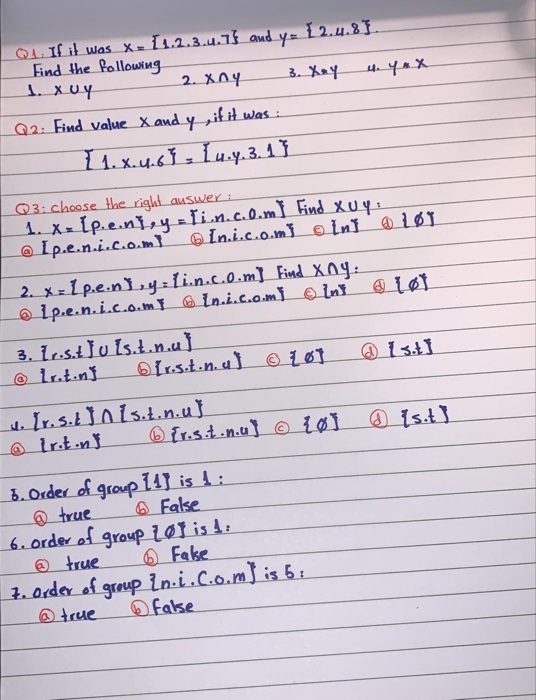 Q1: If it was x = {1.2.3.4.7} and y = {2.4.8}.
Find the following
1. x ∪ y 2. x ∩ y 3. x * y 4. y * x
Q2: Find value x and y, if it was :
{1.x.4.6} = {4.y.3.1}
Q3: choose the right answer :
1. x = {p.e.n}, y = {i.n.c.o.m} Find x ∪ y :
ⓐ {p.e.n.i.c.o.m} ⓑ {n.i.c.o.m} ⓒ {n} ⓓ {Ø}
2. x = {p.e.n}, y = {i.n.c.o.m} Find x ∩ y :
ⓐ {p.e.n.i.c.o.m} ⓑ {n.i.c.o.m} ⓒ {n} ⓓ {Ø}
3. {r.s.t} ∪ {s.t.n.u}
ⓐ {r.t.n} ⓑ {r.s.t.n.u} ⓒ {Ø} ⓓ {s.t}
4. {r.s.t} ∩ {s.t.n.u}
ⓐ {r.t.n} ⓑ {r.s.t.n.u} ⓒ {Ø} ⓓ {s.t}
5. Order of group {1} is 1 :
ⓐ true ⓑ False
6. order of group {Ø} is 1 :
ⓐ true ⓑ False
7. order of group {n.i.C.o.m} is 5 :
ⓐ true ⓑ false